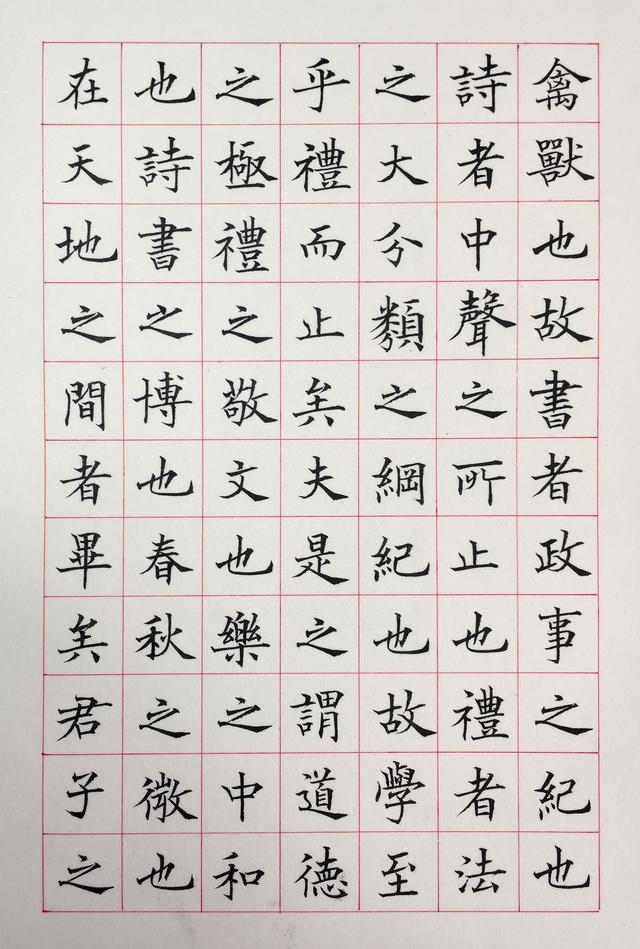 禽獸也故書者政事之紀也
詩者中聲之所止也禮者法
之大分類之綱紀也故學至
乎禮而止矣夫是之謂道德
之極禮之敬文也樂之中和
也詩書之博也春秋之微也
在天地之間者畢矣君子之